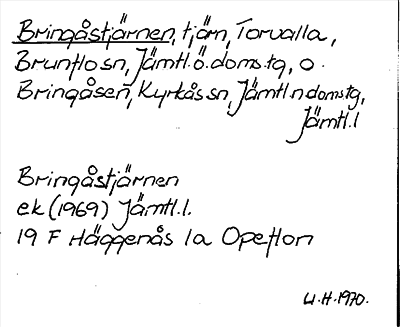 Bringåstjärnen, tjärn, Torvalla,
Brunflo sn, Jämtl. ö. doms.tg, o.
Bringåsen, Kyrkås sn, Jämtl. n domstg,
Jämtl. l
Bringåstjärnen
ek (1969) Jämtl. l.
19 F Häggenås 1a Opeflon
W.H. 1970.